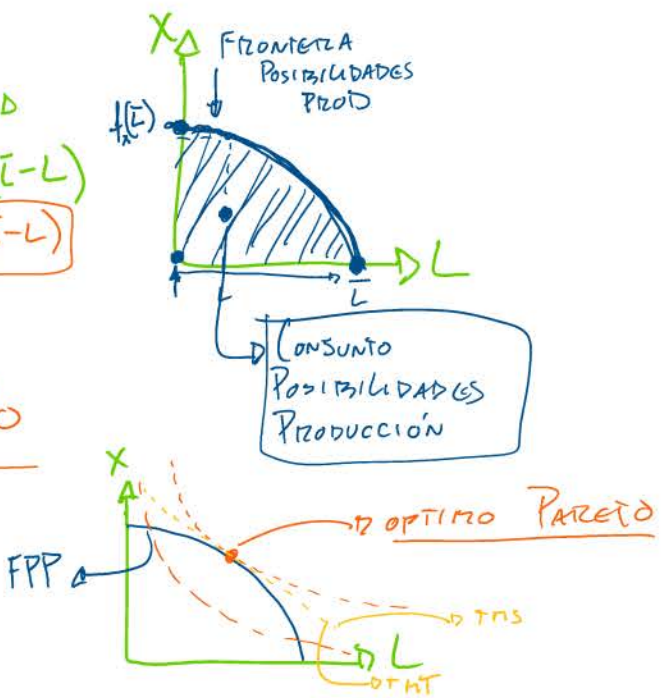 X
FRONTERA
POSIBILIDADES
PROD
fx(L̄)
L̄-L)
-L)
L
L̄
CONJUNTO
POSIBILIDADES
PRODUCCIÓN
O
X
OPTIMO PARETO
FPP
TMS
L
TMT